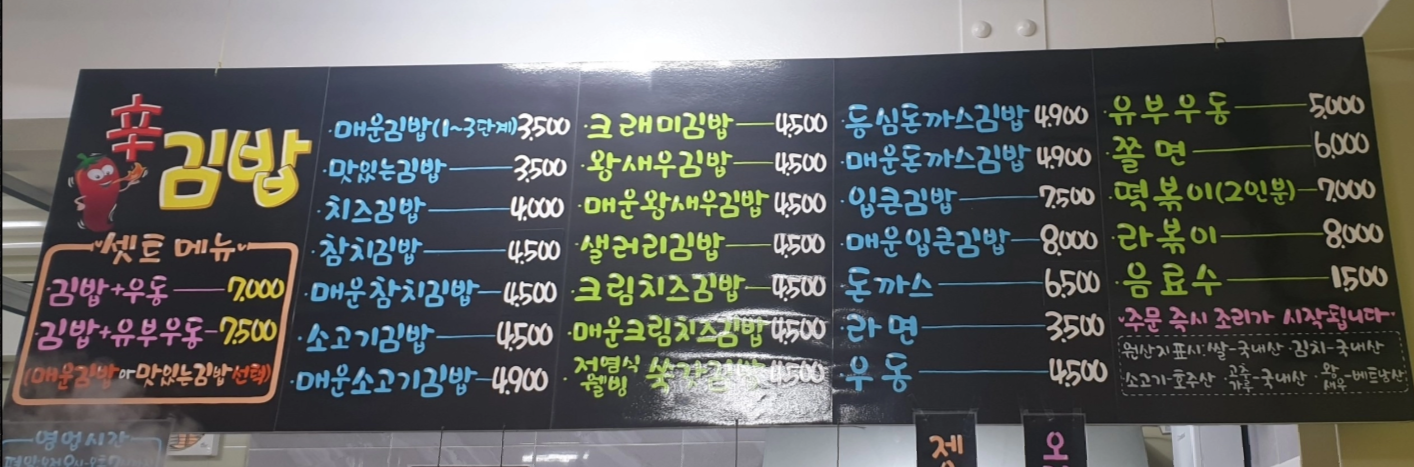 辛
김밥
셋트 메뉴
·김밥+우동 7,000
·김밥+유부우동 7,500
(매운김밥or맛있는김밥 선택)
영업시간
·매운김밥(1~3단계) 3,500
·맛있는김밥 3,500
·치즈김밥 4,000
·참치김밥 4,500
·매운참치김밥 4,500
·소고기김밥 4,500
·매운소고기김밥 4,900
·크래미김밥 4,500
·왕새우김밥 4,500
·매운왕새우김밥 4,500
·샐러리김밥 4,500
·크림치즈김밥 4,500
·매운크림치즈김밥 4,500
·저염식 웰빙 쑥갓김밥 4,500
·등심돈까스김밥 4,900
·매운돈까스김밥 4,900
·입큰김밥 7,500
·매운입큰김밥 8,000
·돈까스 6,500
·라면 3,500
·우동 4,500
·유부우동 5,000
·쫄면 6,000
·떡볶이(2인분) 7,000
·라볶이 8,000
·음료수 1,500
·주문 즉시 조리가 시작됩니다·
원산지표시:쌀-국내산·김치-국내산
·소고기-호주산·고추가루-국내산·왕새우-베트남산
제
오